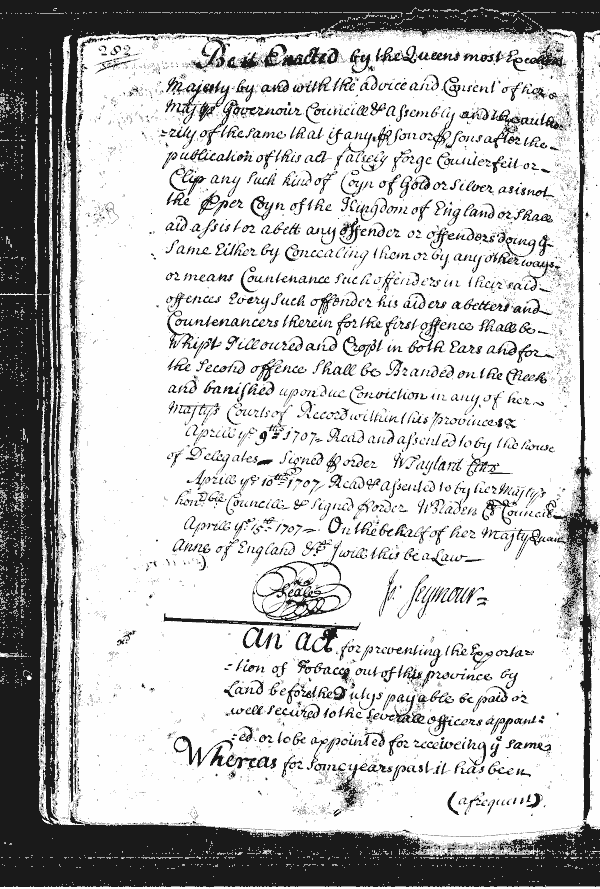 282
Be it Enacted by the Queens most Excellent
Majesty by and with the advice and Consent of her
Majtys Governour Councill & Assembly and the autho
-rity of the same that if any pson or psons after the
publication of this act falsely forge Counterfeit or
Clip any Such kind of Coyn of Gold or Silver as is not
the pper Coyn of the Kingdom of England or Shall
aid assist or abett any offender or offenders doing ye
Same Either by Concealing them or by any other ways
or means Countenance Such offenders in their said
offences Every Such offender his aiders abetters and
Countenancers therein for the first offence Shall be
Whipt Pilloured and Cropt in both Ears and for
the Second offence Shall be Branded on the Cheek
and banished upon due Conviction in any of her
Majtys Courts of Record within this Province &
Aprill ye 9th 1707 Read and assented to by the house
of Delegates Signed p order W Taylard
Aprill ye 10th 1707 Read & assented to by her Majtys
honble Councill & Signed p order W Bladen Cl Council
Aprill ye 15th 1707 On the behalf of her Majty Queen
Anne of England &c I will this be a Law
Seale Jo: Seymour
An act for preventing the Exporta-
-tion of Tobacco out of this province by
Land before the Dutys payable be paid or
well Secured to the Severall officers appoint:
:ed or to be appointed for receiveing ye same
Whereas for Some years past it has been
(a frequent)